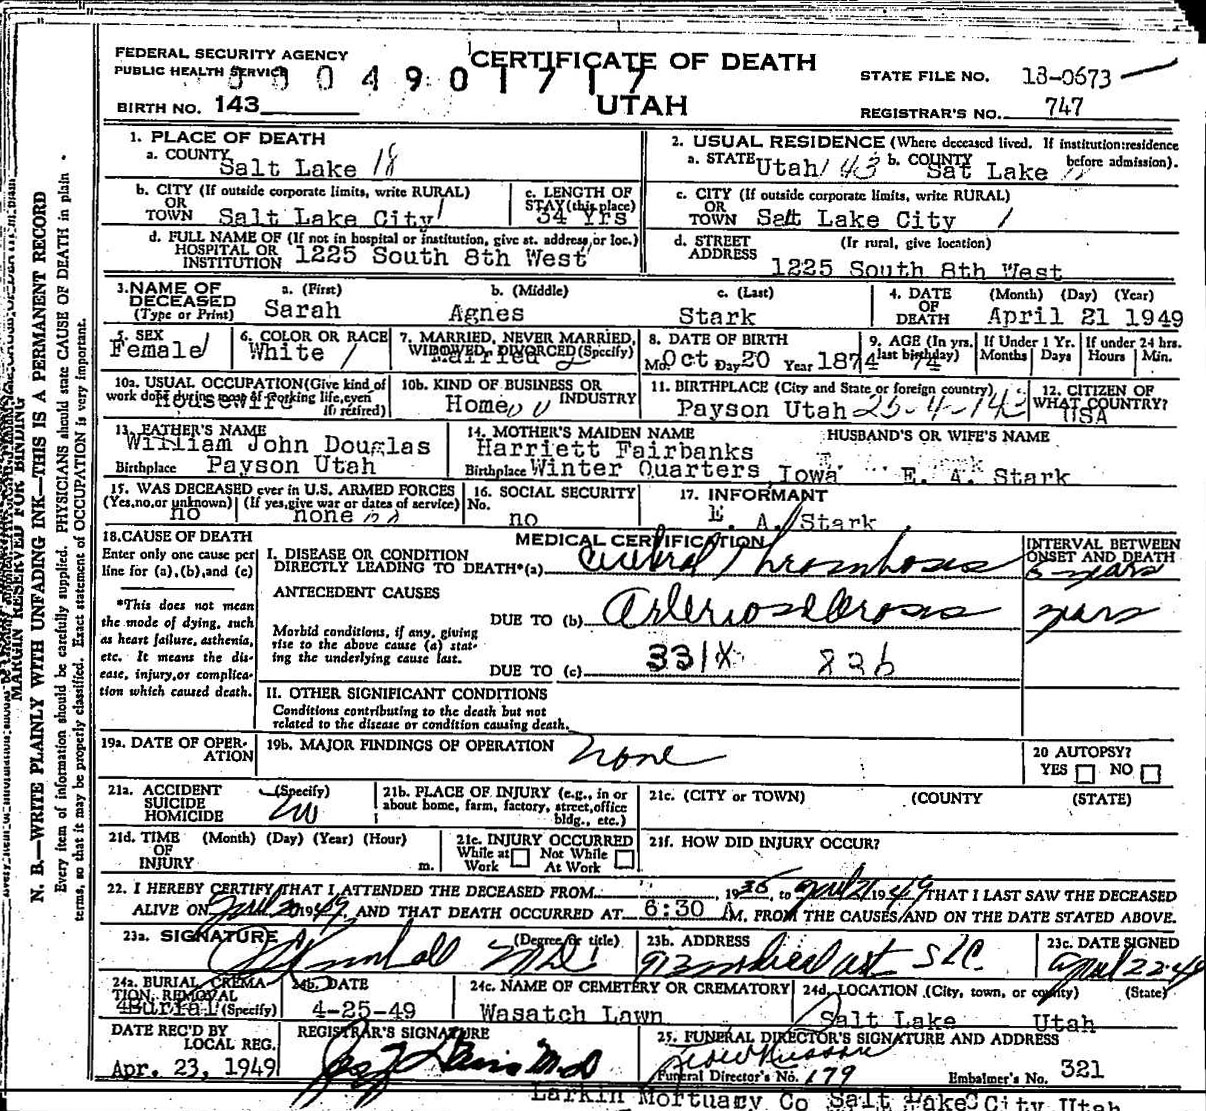 FEDERAL SECURITY AGENCY
PUBLIC HEALTH SERVICE
CERTIFICATE OF DEATH
STATE FILE NO. 18-0673
BIRTH NO. 143
UTAH
REGISTRAR'S NO. 747
1. PLACE OF DEATH
a. COUNTY Salt Lake 18
2. USUAL RESIDENCE (Where deceased lived. If institution: residence before admission).
a. STATE Utah 43 b. COUNTY Sat Lake
b. CITY (If outside corporate limits, write RURAL) OR TOWN Salt Lake City
c. LENGTH OF STAY (this place) 34 Yrs
c. CITY (If outside corporate limits, write RURAL) OR TOWN Salt Lake City
d. FULL NAME OF (If not in hospital or institution, give st. address, or loc.) HOSPITAL OR INSTITUTION 1225 South 8th West
d. STREET ADDRESS (Ir rural, give location) 1225 South 8th West
3. NAME OF DECEASED (Type or Print)
a. (First) Sarah
b. (Middle) Agnes
c. (Last) Stark
4. DATE OF DEATH (Month) (Day) (Year) April 21 1949
5. SEX Female
6. COLOR OR RACE White
7. MARRIED, NEVER MARRIED, WIDOWED, DIVORCED (Specify)
8. DATE OF BIRTH Mo. Oct Day 20 Year 1874
9. AGE (In yrs. last birthday) 74
If Under 1 Yr. Months Days
If under 24 hrs. Hours Min.
10a. USUAL OCCUPATION (Give kind of work done during most of working life, even if retired) Housewife
10b. KIND OF BUSINESS OR INDUSTRY Home
11. BIRTHPLACE (City and State or foreign country) Payson Utah 25-4-143
12. CITIZEN OF WHAT COUNTRY? USA
13. FATHER'S NAME William John Douglas
Birthplace Payson Utah
14. MOTHER'S MAIDEN NAME Harriett Fairbanks
Birthplace Winter Quarters Iowa
HUSBAND'S OR WIFE'S NAME
E. A. Stark
15. WAS DECEASED ever in U.S. ARMED FORCES
(Yes, no, or unknown) no (If yes, give war or dates of service) none
16. SOCIAL SECURITY No. no
17. INFORMANT E. A. Stark
18. CAUSE OF DEATH
Enter only one cause per line for (a), (b), and (c)
*This does not mean the mode of dying, such as heart failure, asthenia, etc. It means the disease, injury, or complication which caused death.
MEDICAL CERTIFICATION
INTERVAL BETWEEN ONSET AND DEATH
I. DISEASE OR CONDITION DIRECTLY LEADING TO DEATH*(a) Cerebral Thrombosis years
ANTECEDENT CAUSES
Morbid conditions, if any, giving rise to the above cause (a) stating the underlying cause last.
DUE TO (b) Arteriosclerosis years
DUE TO (c) 331X 826
II. OTHER SIGNIFICANT CONDITIONS
Conditions contributing to the death but not related to the disease or condition causing death.
19a. DATE OF OPERATION
19b. MAJOR FINDINGS OF OPERATION none
20 AUTOPSY? YES NO
21a. ACCIDENT SUICIDE HOMICIDE (Specify)
21b. PLACE OF INJURY (e.g., in or about home, farm, factory, street, office bldg., etc.)
21c. (CITY or TOWN) (COUNTY) (STATE)
21d. TIME OF INJURY (Month) (Day) (Year) (Hour) m.
21e. INJURY OCCURRED While at Work Not While At Work
21f. HOW DID INJURY OCCUR?
22. I HEREBY CERTIFY THAT I ATTENDED THE DECEASED FROM 1936, to April 21 1949 THAT I LAST SAW THE DECEASED
ALIVE ON April 20 1949, AND THAT DEATH OCCURRED AT 6:30 A M, FROM THE CAUSES AND ON THE DATE STATED ABOVE.
23a. SIGNATURE (Degree or title) MD
23b. ADDRESS SLC.
23c. DATE SIGNED April 22-49
24a. BURIAL, CREMATION, REMOVAL (Specify) Burial
24b. DATE 4-25-49
24c. NAME OF CEMETERY OR CREMATORY Wasatch Lawn
24d. LOCATION (City, town, or county) (State) Salt Lake Utah
DATE REC'D BY LOCAL REG. Apr. 23, 1949
REGISTRAR'S SIGNATURE
25. FUNERAL DIRECTOR'S SIGNATURE AND ADDRESS
Funeral Director's No. 179
Embalmer's No. 321
Larkin Mortuary Co Salt Lake City Utah
N. B.—WRITE PLAINLY WITH UNFADING INK—THIS IS A PERMANENT RECORD
MARGIN RESERVED FOR BINDING
Every item of information should be carefully supplied. PHYSICIANS should state CAUSE OF DEATH in plain
terms, so that it may be properly classified. Exact statement of OCCUPATION is very important.